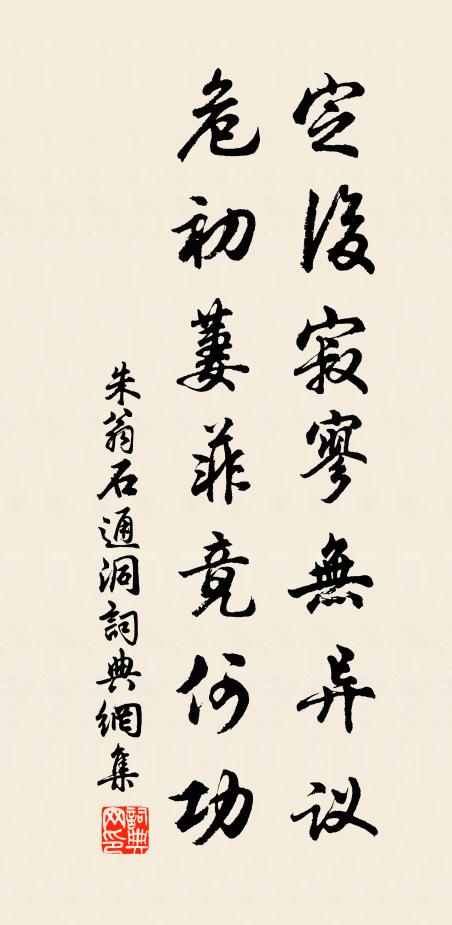 定後寂寥無异议
危初萋菲竟何功
朱翁石通洞詞典網集
詞典网印